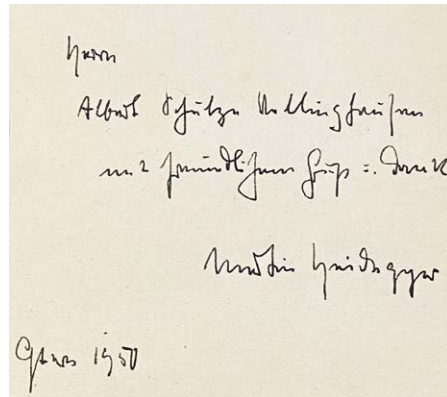 Herrn
Albert Schulze Vellinghausen
mit freundlichem Gruß u. Dank
Martin Heidegger
Ostern 1950